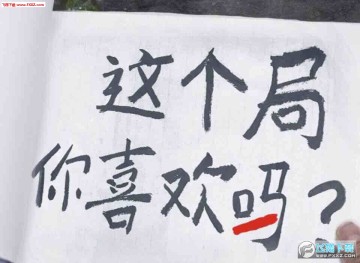 飞翔下载 www.F1XZ.com
这个局
你喜欢吗?